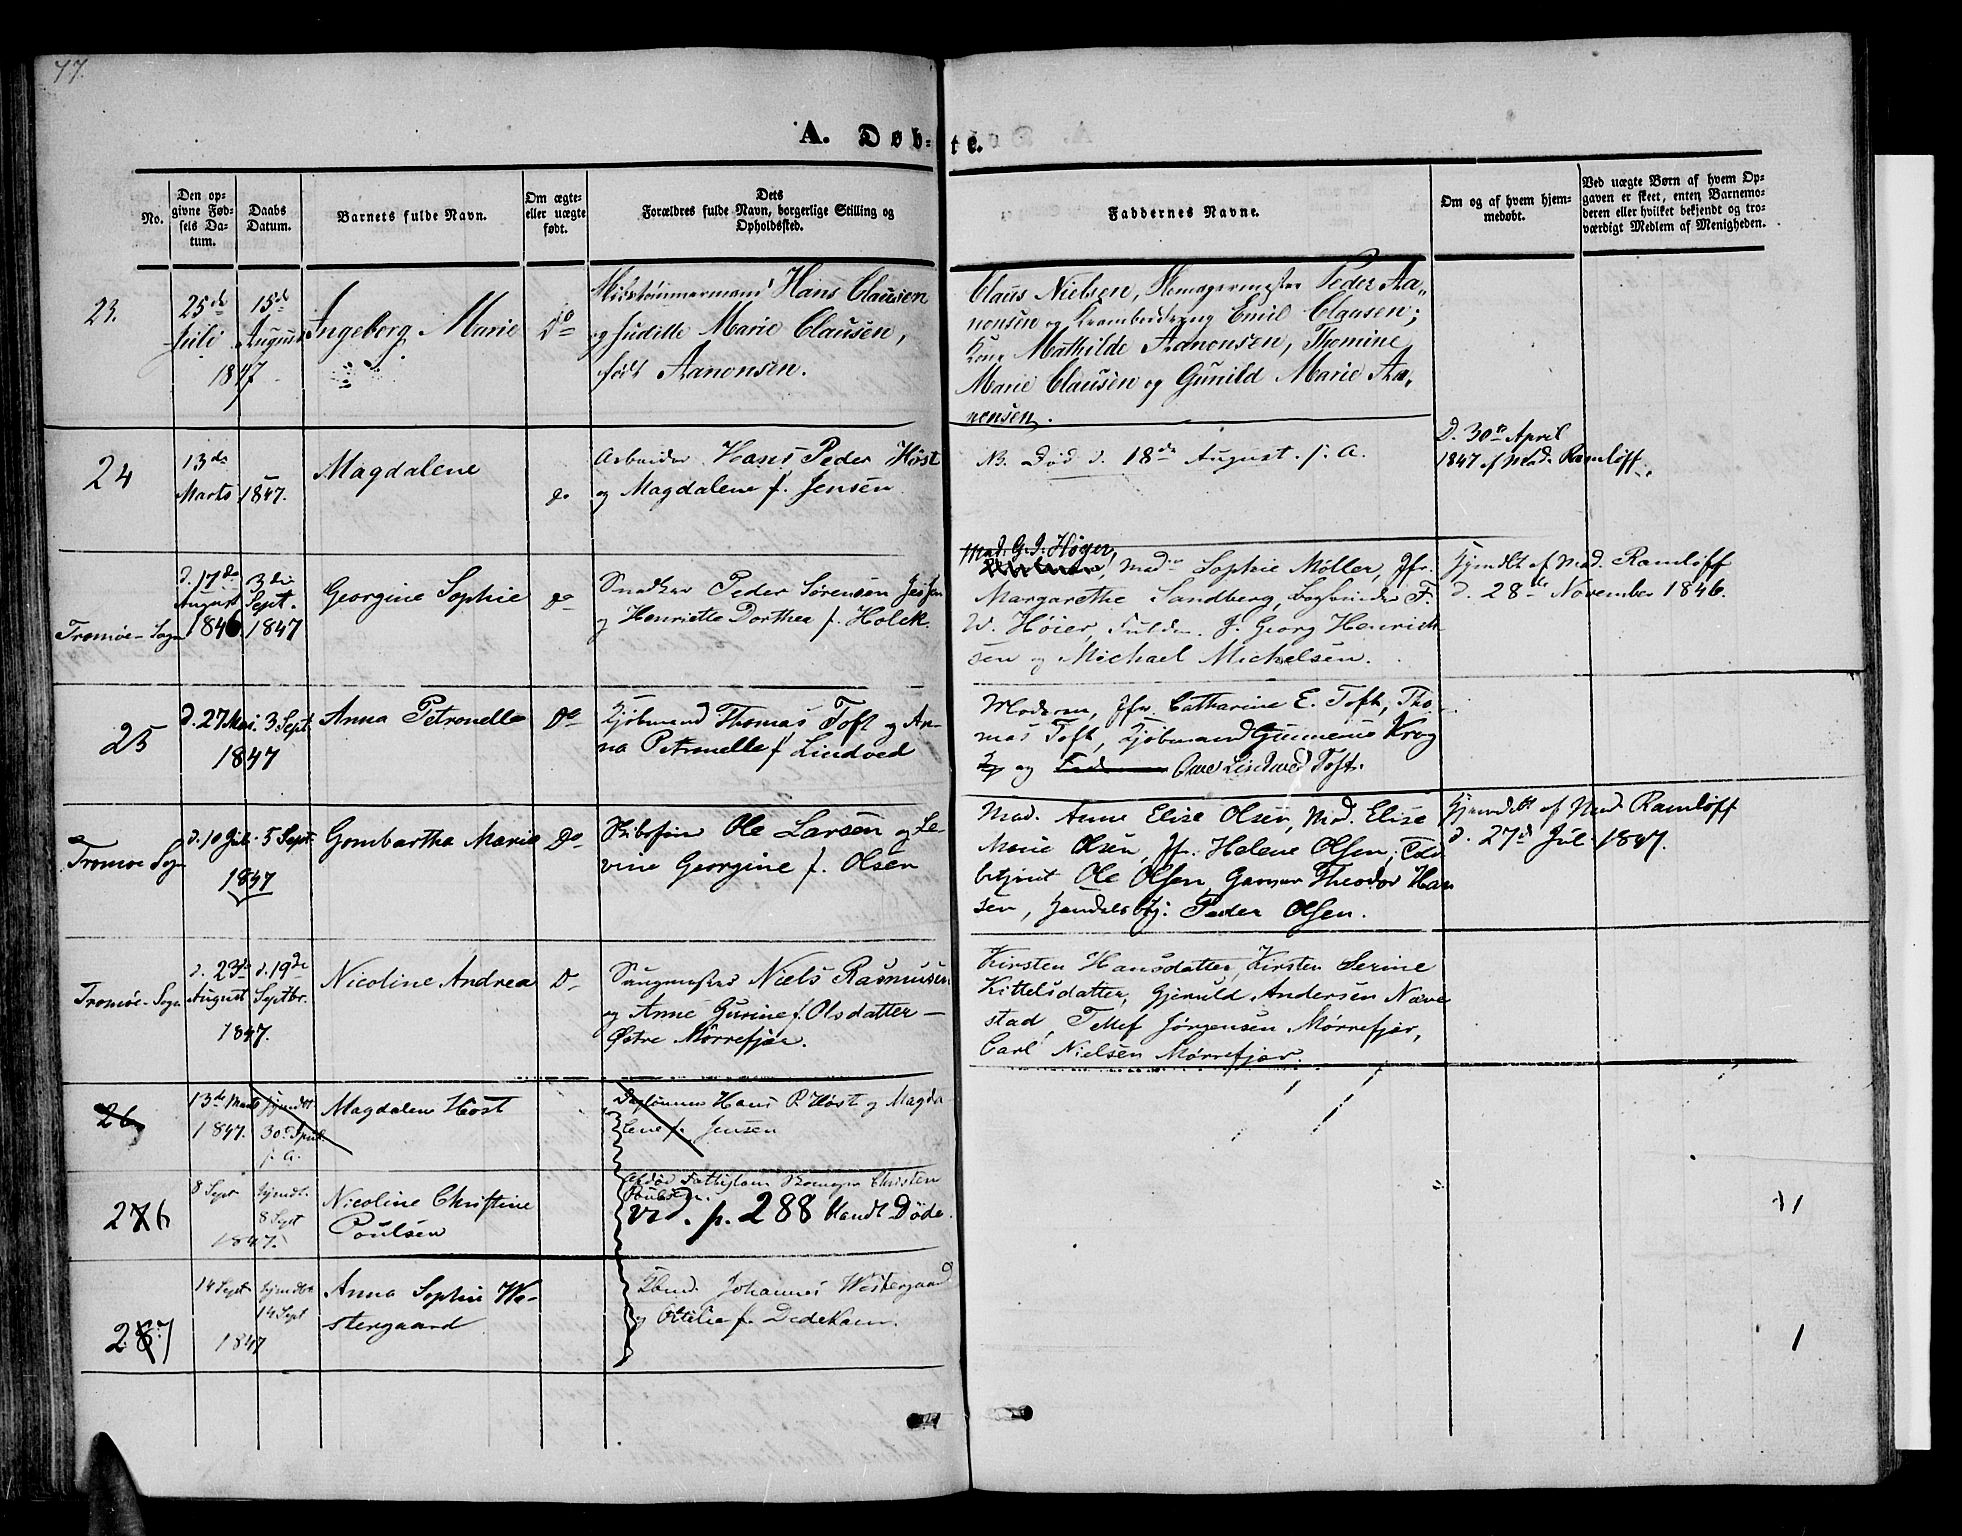 77.
A. Døb-te.
No.
Den op-
givne Fød-
sels Da-
tum.
Daabs
Datum.
Barnets fulde Navn.
Om ægte-
eller uægte
født.
Dets
Forældres fulde Navn, borgerlige Stilling og
Opholdssted.
Faddernes Navne.
Om og af hvem hjem-
medøbt.
Ved uægte Børn af hvem Op-
gaven er skeet, enten Barnemo-
deren eller hvilket bekjendt og tro-
værdigt Medlem af Menigheden.
23.
25de
Juli
15de
August
1847
Ingeborg Marie
Do
Skibstømmermand Hans Clausen
og Judithe Marie Clausen,
født Aanonsen.
Claus Nielsen, Peder Aa-
nonsen og Emil Clausen;
Kone Mathilde Aanonsen, Thomine
Marie Clausen og Gunild Marie Aa-
nonsen.
24
13de
Marts
1847.
Magdalene
do
Arbeider Hans Peder Høst
og Magdalene f. Jensen
NB. Død d. 18de August f. A.
d. 30te April
1847 af Mad. Ramløff.
Tromøe-Sogn
d. 17de
August
1846
3die
Sept.
1847
Georgine Sophie
do
Snedker Peder Sørensen Jessen
og Henriette Dorthea f. Holck.
Mad. G. J. Høyer,
Mad. Sophie Møller, Jfr.
Margarethe Sandberg, Bogbinder F.
W. Høier, J. Georg Henrich-
sen og Michael Michelsen.
Hjemdt af Mad. Ramløff
d. 28de November 1846.
25
d. 27 Mai
3 Sept.
1847
Anna Petronelle
Do
Kjøbmand Thomas Toft og An-
na Petronelle f. Lindved
Moderen, Jfr. Catharine E. Toft, Tho-
mas Toft, Kjøbmand Gunnenius Krog
og Ove Lindved Toft.
Tromøe Sogn
d. 10 Juli
5 Sept.
1847
Gombartha Marie
Do
Skibsfører Ole Larsen og Le-
vine Georgine f. Olsen
Mad. Anne Elise Olsen, Mad. Elise
Marie Olsen, Jfr. Helene Olsen,
Ole Olsen, Garver Theodor Han-
sen, Handelsbtj. Peder Olsen.
Hjemdøbt af Mad Ramløff
d. 27de Juli 1847.
Tromøe-Sogn
d. 23de
August
d. 19de
Septbr.
1847.
Nicoline Andrea
Do
Niels Rasmussen
og Anne Gurine f. Olsdatter —
Østre Mørrefjær.
Kirsten Hansdatter, Kirsten Serine
Kittelsdatter, Gjeruld Andersen Næve-
stad, Tellef Jørgensen Mørrefjær,
Carl Nielsen Mørrefjær.
26
13de Marts
1847.
hjemdbt
30 April
f. A.
Magdalene Høst
Hans P. Høst og Magda-
lene f. Jensen
276
8 Sept
hjemdt.
8 Sept
1847.
Nicoline Christine
Poulsen
Christen
Poulsen.
Vid. p. 288 blandt Døde.
1
287
14 Sept
hjemdbt
14 Sept
1847
Anna Sophie We-
stergaard
Kbmd. Johannes Westergaard
og Ottilie f. Dedekam.
1